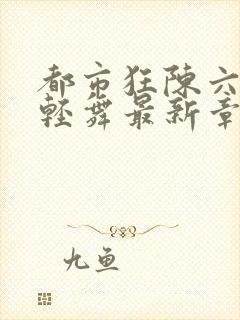 都市狂陈六
轻舞最新章
九鱼